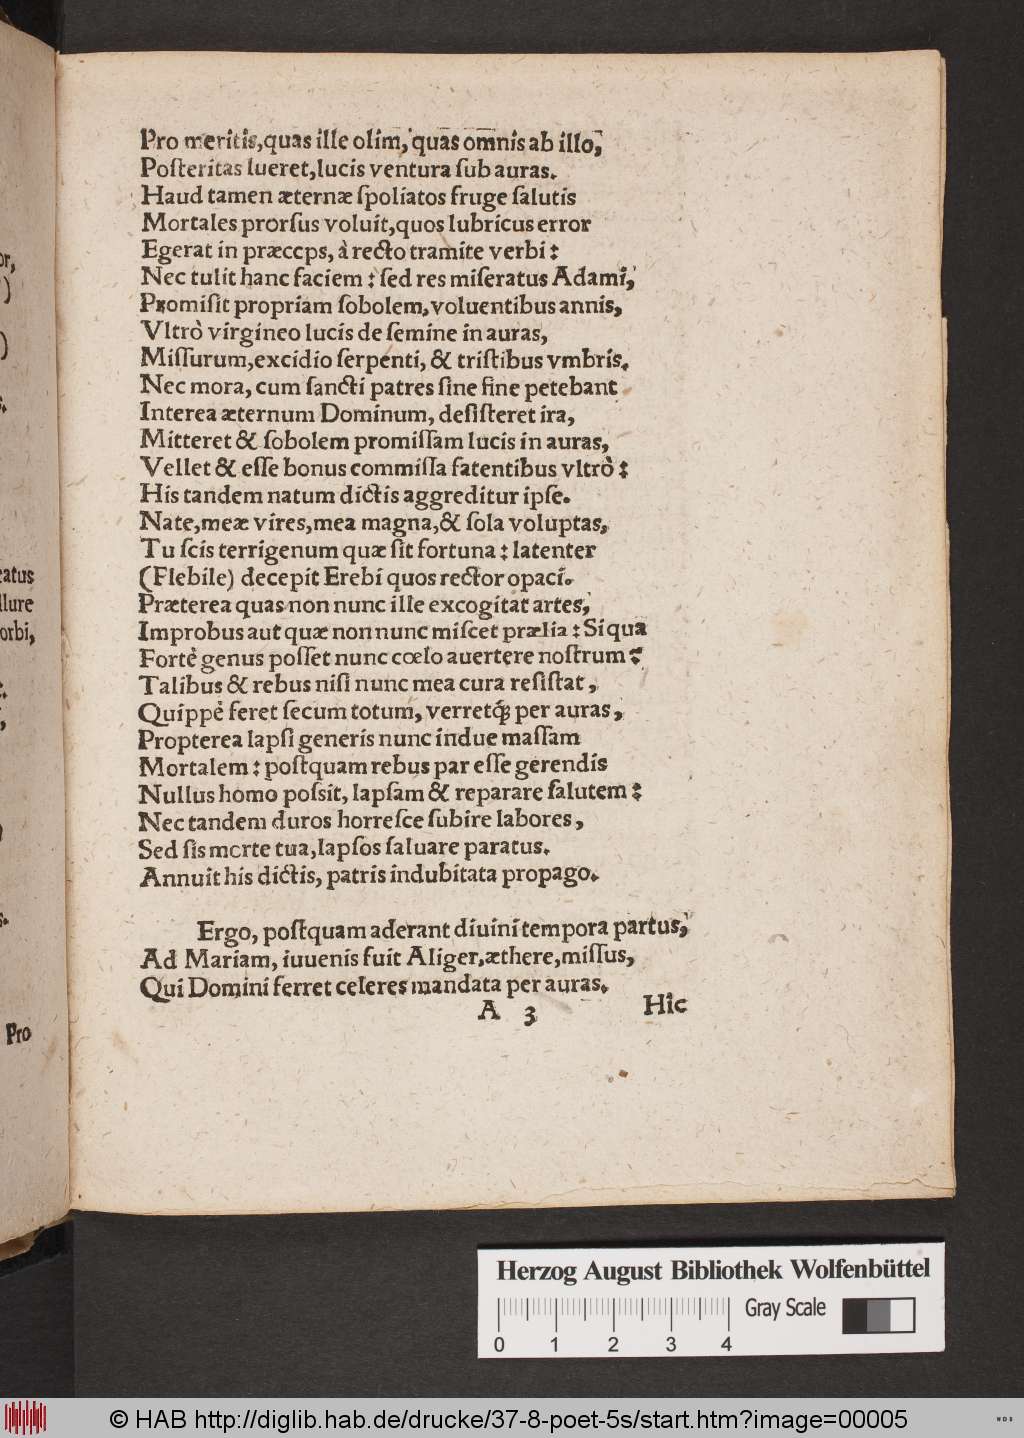 Pro meritis,quas ille olim, quas omnis ab illo,
Poſteritas lueret,lucis ventura ſub auras.
Haud tamen æternæ ſpoliatos fruge ſalutis
Mortales prorſus voluit,quos lubricus error
Egerat in præceps, à recto tramite verbi:
Nec tulit hanc faciem: ſed res miſeratus Adami,
Promiſit propriam ſobolem,voluentibus annis,
Vltrò virgineo lucis de ſemine in auras,
Miſſurum,excidio ſerpenti, & triſtibus vmbris.
Nec mora, cum ſancti patres ſine fine petebant
Interea æternum Dominum, deſiſteret ira,
Mitteret & ſobolem promiſſam lucis in auras,
Vellet & eſſe bonus commiſſa fatentibus vltrò:
His tandem natum dictis aggreditur ipſe.
Nate,meæ vires,mea magna,& ſola voluptas,
Tu ſcis terrigenum quæ ſit fortuna: latenter
(Flebile) decepit Erebi quos rector opaci.
Præterea quas non nunc ille excogitat artes,
Improbus aut quæ non nunc miſcet prælia: Si qua
Fortè genus poſſet nunc cœlo auertere noſtrum:
Talibus & rebus niſi nunc mea cura reſiſtat,
Quippè feret ſecum totum, verretq́; per auras,
Propterea lapſi generis nunc indue maſſam
Mortalem: poſtquam rebus par eſſe gerendis
Nullus homo poſsit, lapſam & reparare ſalutem:
Nec tandem duros horreſce ſubire labores,
Sed ſis morte tua,lapſos ſaluare paratus.
Annuit his dictis, patris indubitata propago.
Ergo, poſtquam aderant diuini tempora partus,
Ad Mariam, iuuenis fuit Aliger,æthere,miſſus,
Qui Domini ferret celeres mandata per auras.
A 3 Hic
or,
)
)
eatus
llure
orbi,
Pro
Herzog August Bibliothek Wolfenbüttel
Gray Scale
0 1 2 3 4
© HAB http://diglib.hab.de/drucke/37-8-poet-5s/start.htm?image=00005